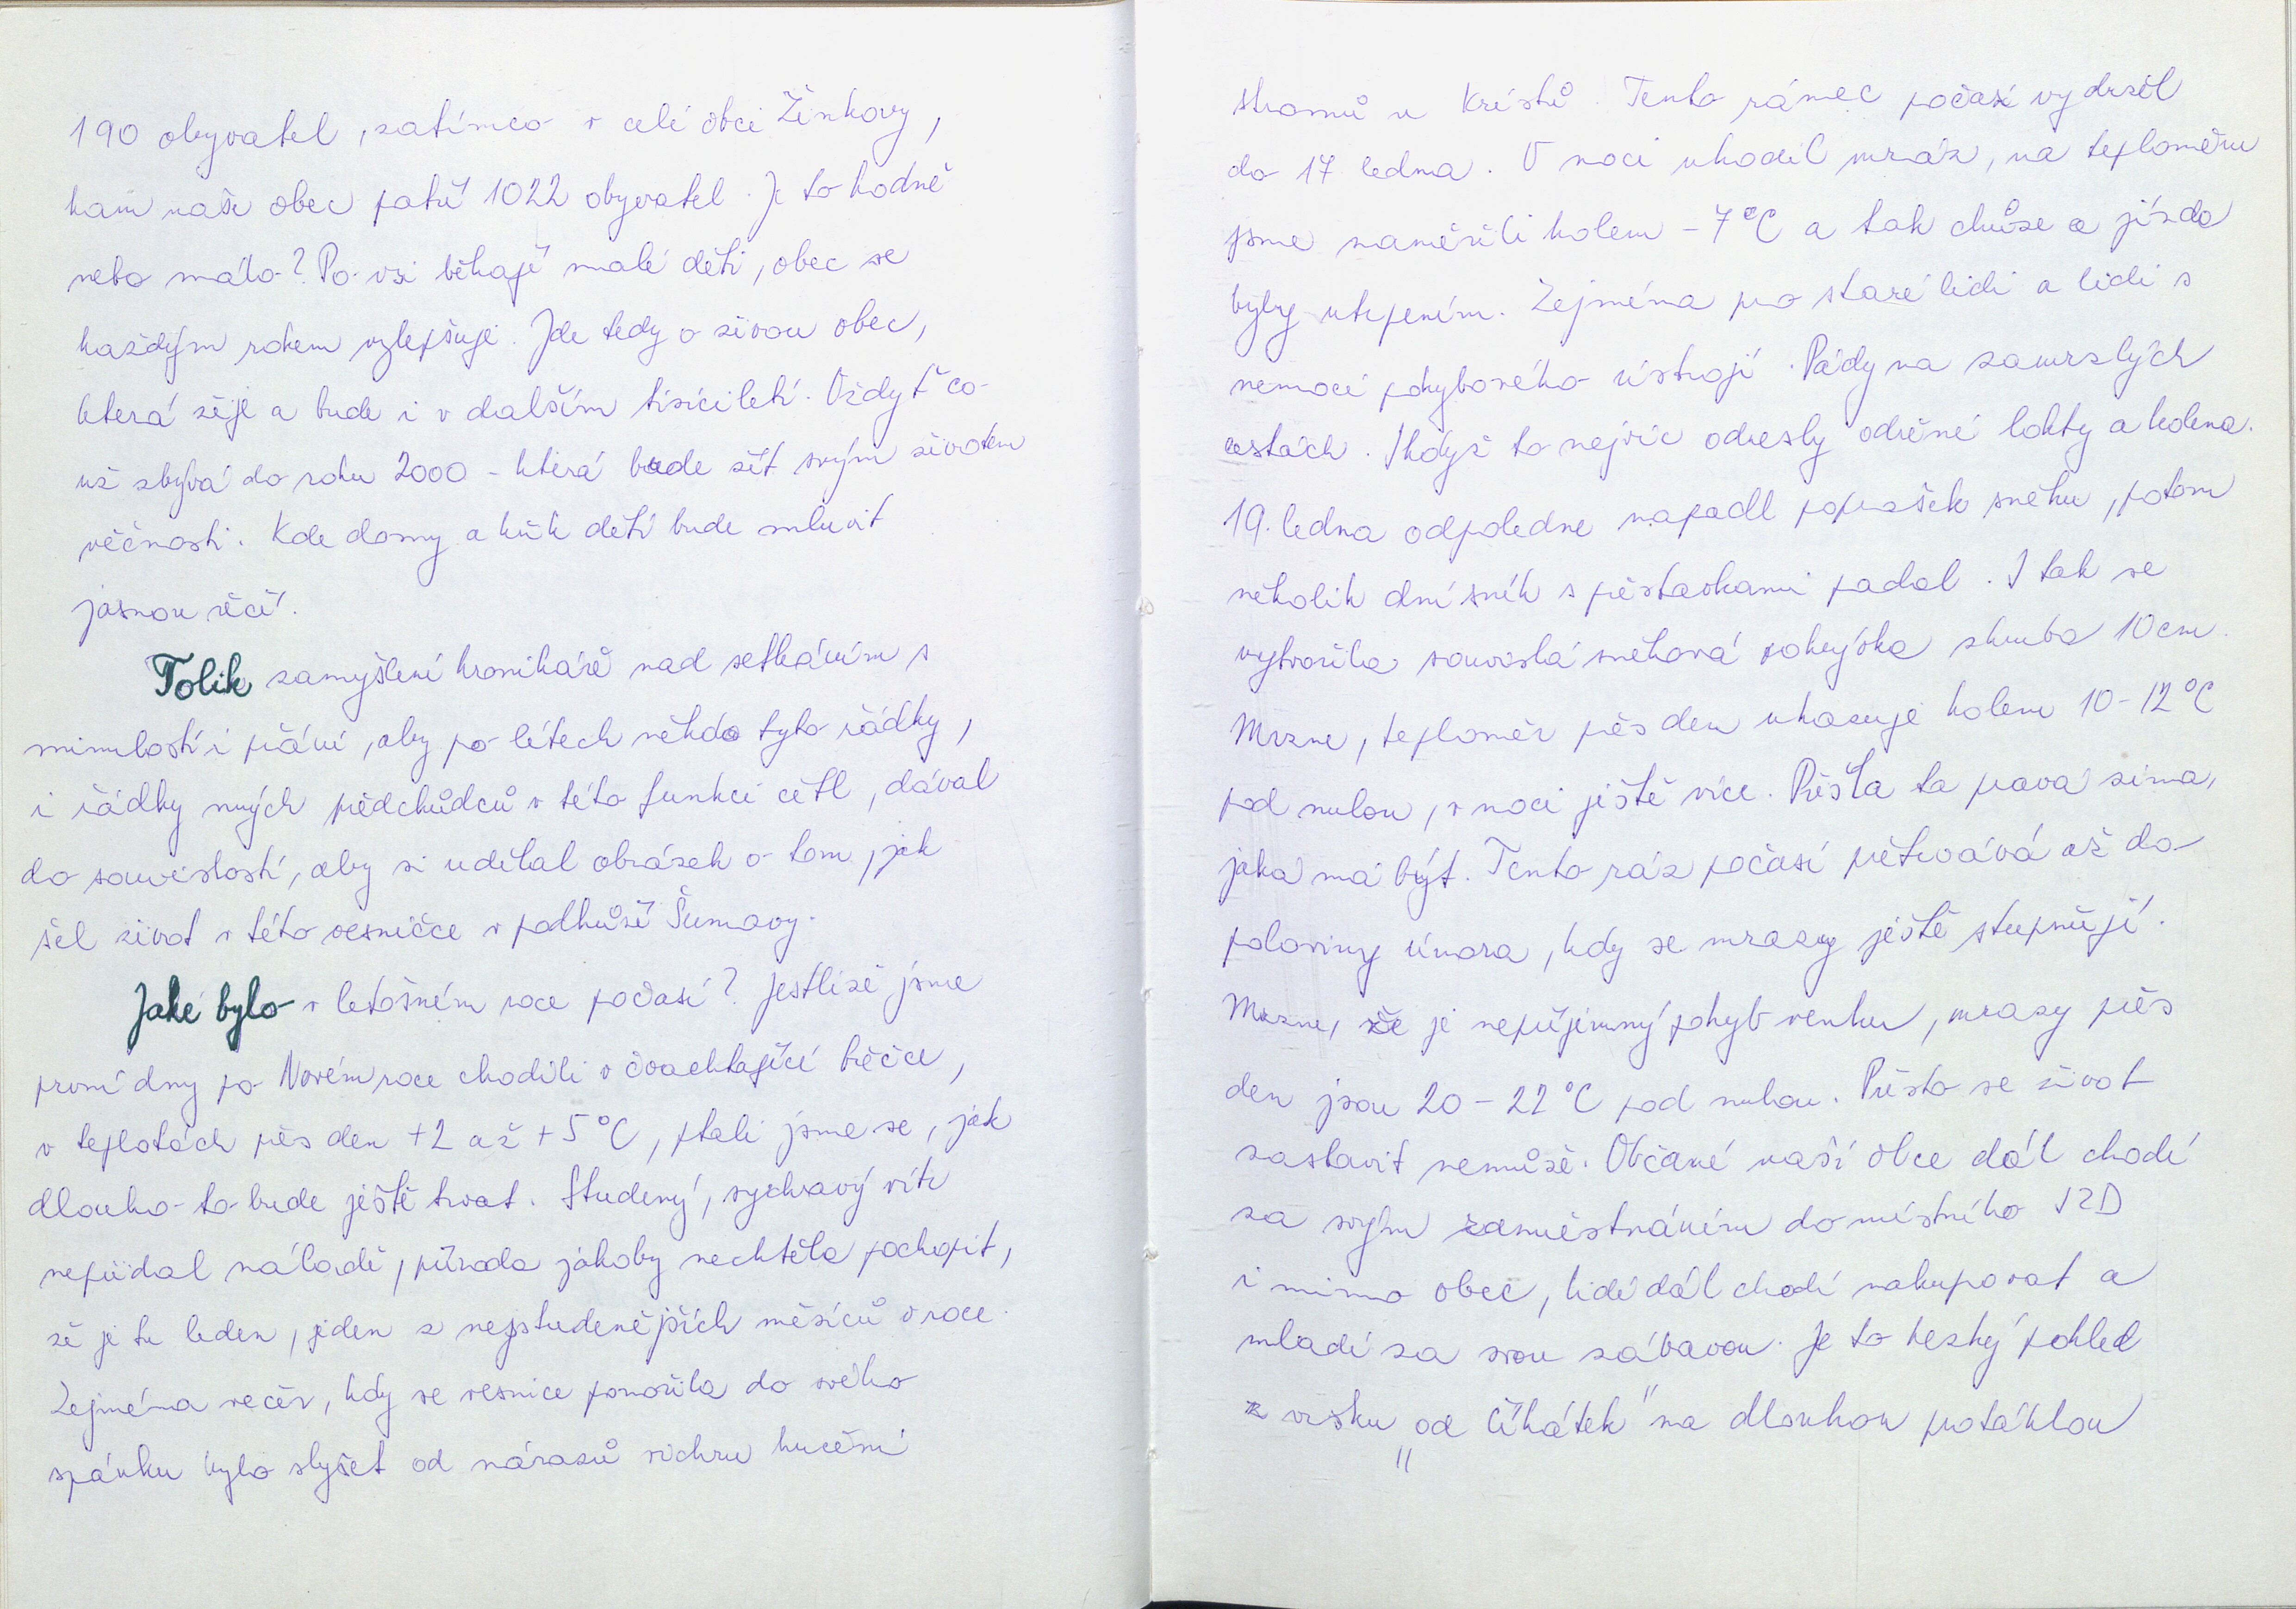 190 obyvatel, zatímco v celé obci Žinkovy,
kam naše obec patří 1022 obyvatel. Je to hodně
nebo málo? Po vsi běhají malé děti, obec se
každým rokem vzlepšuje. Jde tedy o živou obec,
která žije a bude i v dalším tisíciletí. Vždyť co
už zbývá do roku 2000 - která bude žít svým životem
věčnosti. Kde domy a křik dětí bude mluvit
jasnou řečí.
Tolik zamyšlení kronikáře nad setkáním s
minulostí i přání, aby po létech někdo tyto řádky,
i řádky mých předchůdců v této funkci četl, dával
do souvislostí, aby si udělal obrázek o tom, jak
šel život v této vesničce v podhůří Šumavy.
Jaké bylo v letošném roce počasí? Jestliže jsme
první dny po Novém roce chodili v čvachtající břečce,
v teplotách přes den +2 až +5°C, ptali jsme se, jak
dlouho to bude ještě trvat. Studený, sychravý vítr
nepřidal náladě, příroda jakoby nechtěla pochopit,
že je tu leden, jeden z nejstudenějších měsíců v roce.
Zejména večer, kdy se vesnice ponořila do svého
spánku bylo slyšet od nárazů vichru hučení
stromů u Kristů. Tento rámec počasí vydržel
do 17 ledna. V noci uhodil mráz, na teploměru
jsme naměřili kolem -7°C a tak chůze a jízda
byly utrpením. Zejména pro staré lidi a lidi s
nemocí pohybového ústrojí. Pády na zamrzlých
cestách. I když to nejvíc odnesly odřené lokty a kolena.
19. ledna odpoledne napadl poprašek sněhu, potom
několik dní sníh s přestávkami padal. I tak se
vytvořila souvislá sněhová pokrývka zhruba 10 cm.
Mrzne, teploměr přes den ukazuje kolem 10-12°C
pod nulou, v noci ještě více. Přišla ta pravá zima,
jaká má být. Tento ráz počasí přetrvává až do
poloviny února, kdy se mrazy ještě stupňují.
Mrzne, že je nepříjemný pohyb venku, mrazy přes
den jsou 20-22°C pod nulou. Přesto se život
zastavit nemůže. Občané naší obce dál chodí
za svým zaměstnáním do místního JZD
i mimo obec, lidé dál chodí nakupovat a
mladí za svou zábavou. Je to hezký pohled
z vršku „od Číhátek" na dlouhou protáhlou